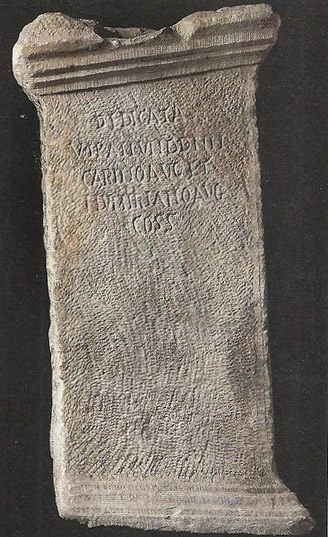 DEDICATA
KAL IVN DD NN
CARINO AVG ET
NVMERIANO AVG
COSS